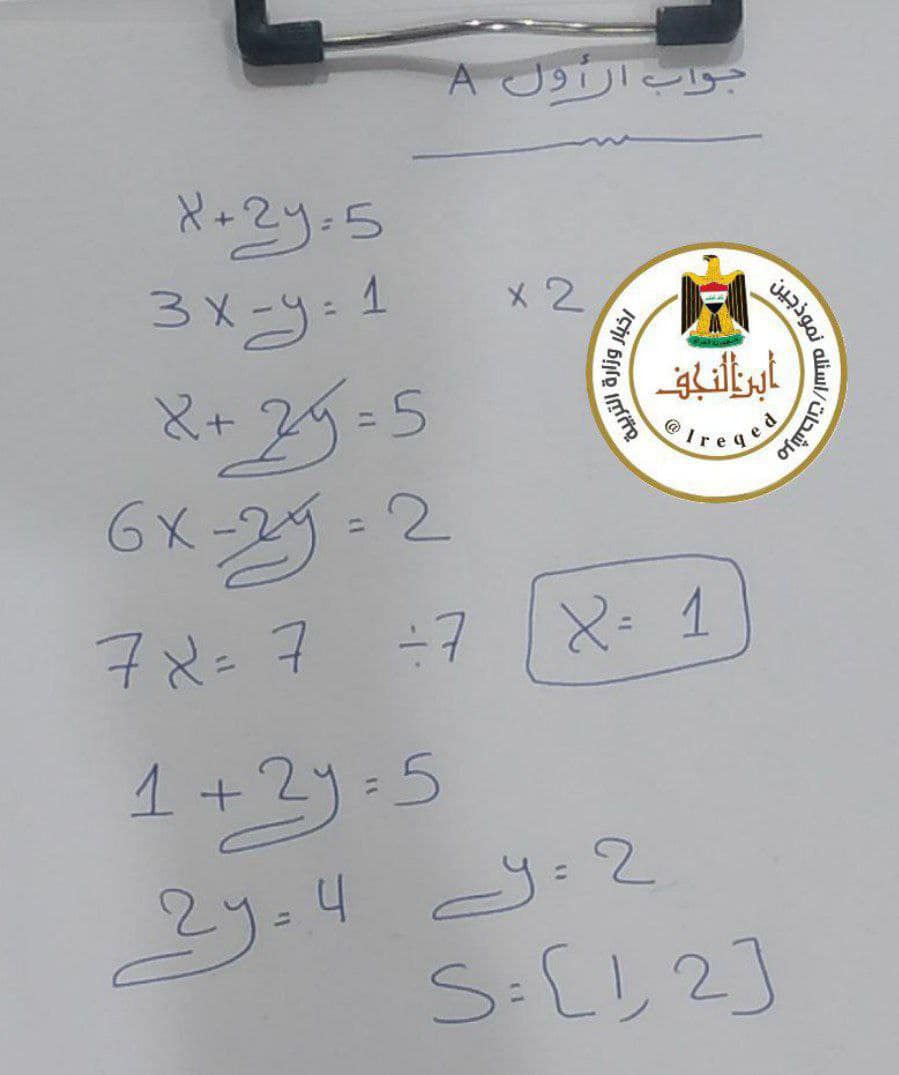 جواب الأول A
x+2y=5
3x-y=1 ×2
x+2y=5
6x-2y=2
7x=7 ÷7 x=1
1+2y=5
2y=4 y=2
S=[1,2]
اخبار وزارة التربية
مرشحات/اسئله نموذجين
ابن النجف
@Ireqed